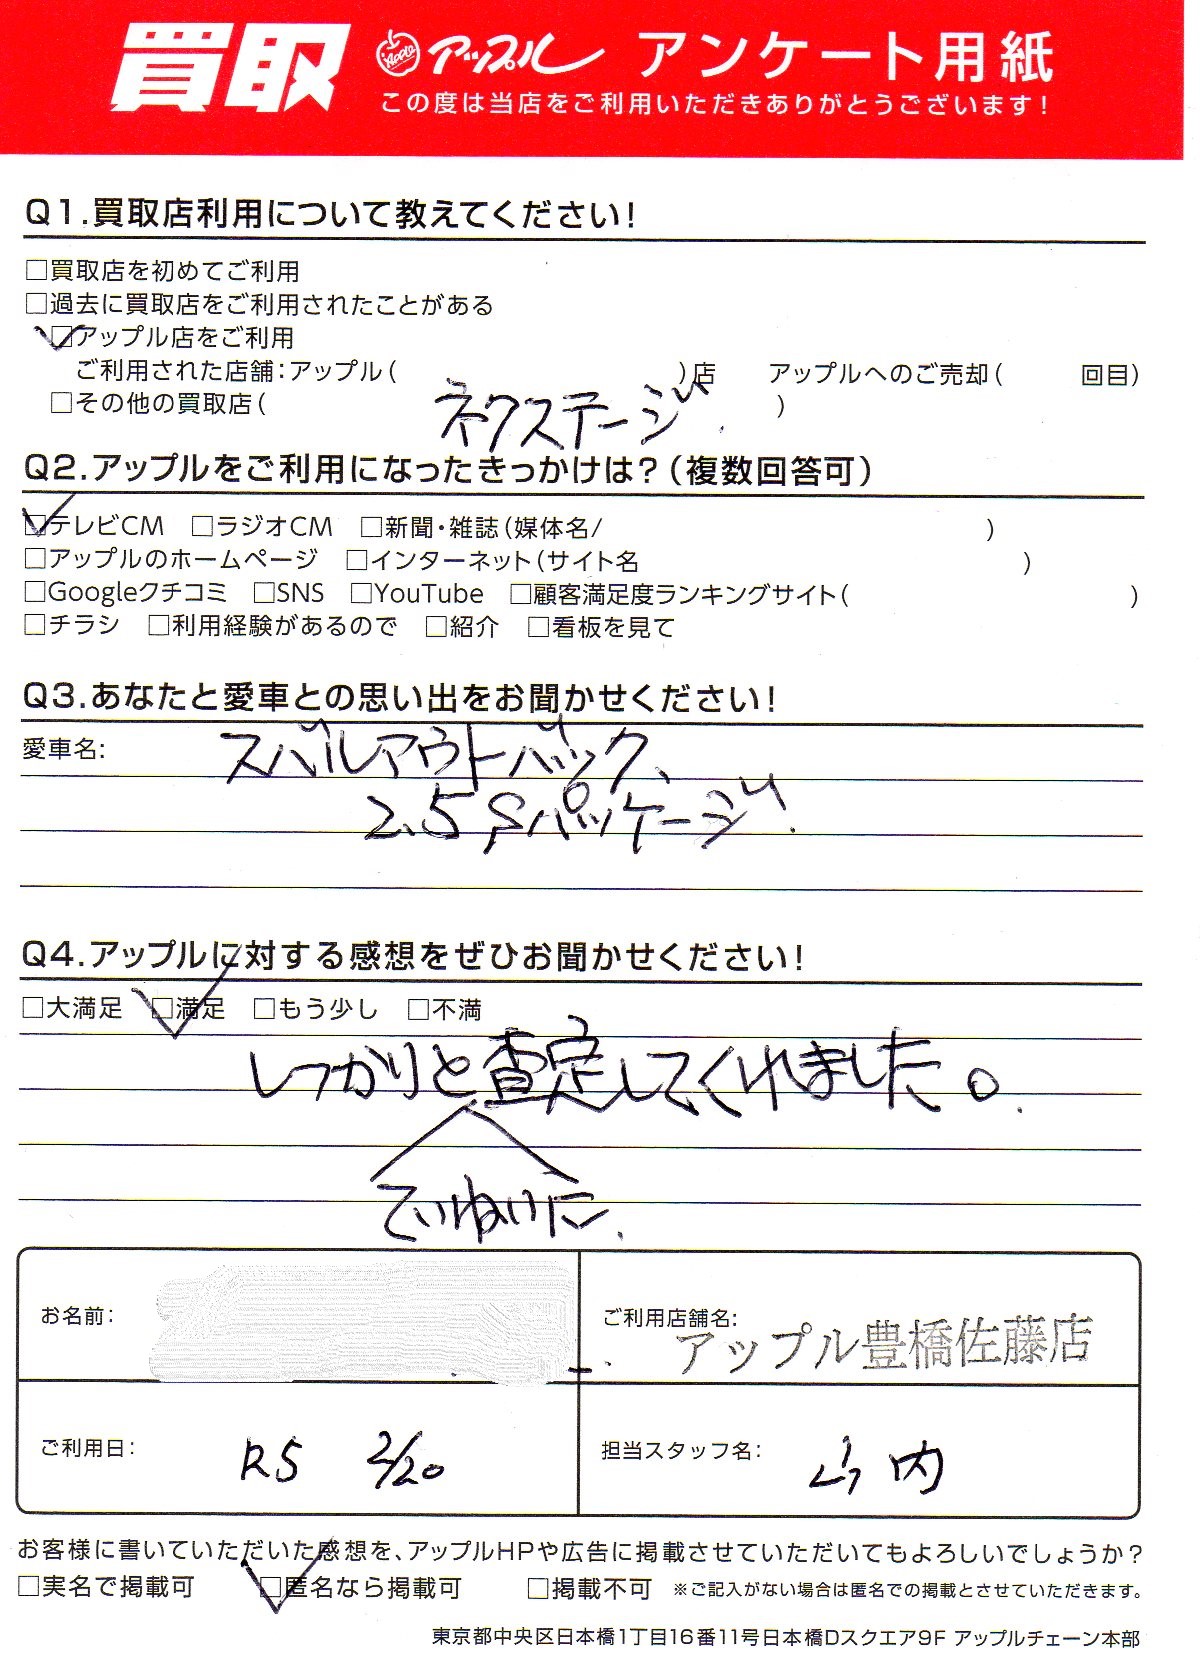 買取 Apple アップル アンケート用紙
この度は当店をご利用いただきありがとうございます!
Q1.買取店利用について教えてください!
□買取店を初めてご利用
□過去に買取店をご利用されたことがある
☑アップル店をご利用
ご利用された店舗:アップル( )店 アップルへのご売却( 回目)
□その他の買取店( ネクステージ )
Q2.アップルをご利用になったきっかけは?(複数回答可)
☑テレビCM □ラジオCM □新聞・雑誌(媒体名/ )
□アップルのホームページ □インターネット(サイト名 )
□Googleクチコミ □SNS □YouTube □顧客満足度ランキングサイト( )
□チラシ □利用経験があるので □紹介 □看板を見て
Q3.あなたと愛車との思い出をお聞かせください!
愛車名: スバルアウトバック、
2.5 Sパッケージ.
Q4.アップルに対する感想をぜひお聞かせください!
□大満足 ☑満足 □もう少し □不満
しっかりと査定してくれました。
ていねいに.
お名前:
ご利用店舗名:
アップル豊橋佐藤店
ご利用日: R5 2/20
担当スタッフ名: 山内
お客様に書いていただいた感想を、アップルHPや広告に掲載させていただいてもよろしいでしょうか?
□実名で掲載可 ☑匿名なら掲載可 □掲載不可 ※ご記入がない場合は匿名での掲載とさせていただきます。
東京都中央区日本橋1丁目16番11号日本橋Dスクエア9F アップルチェーン本部